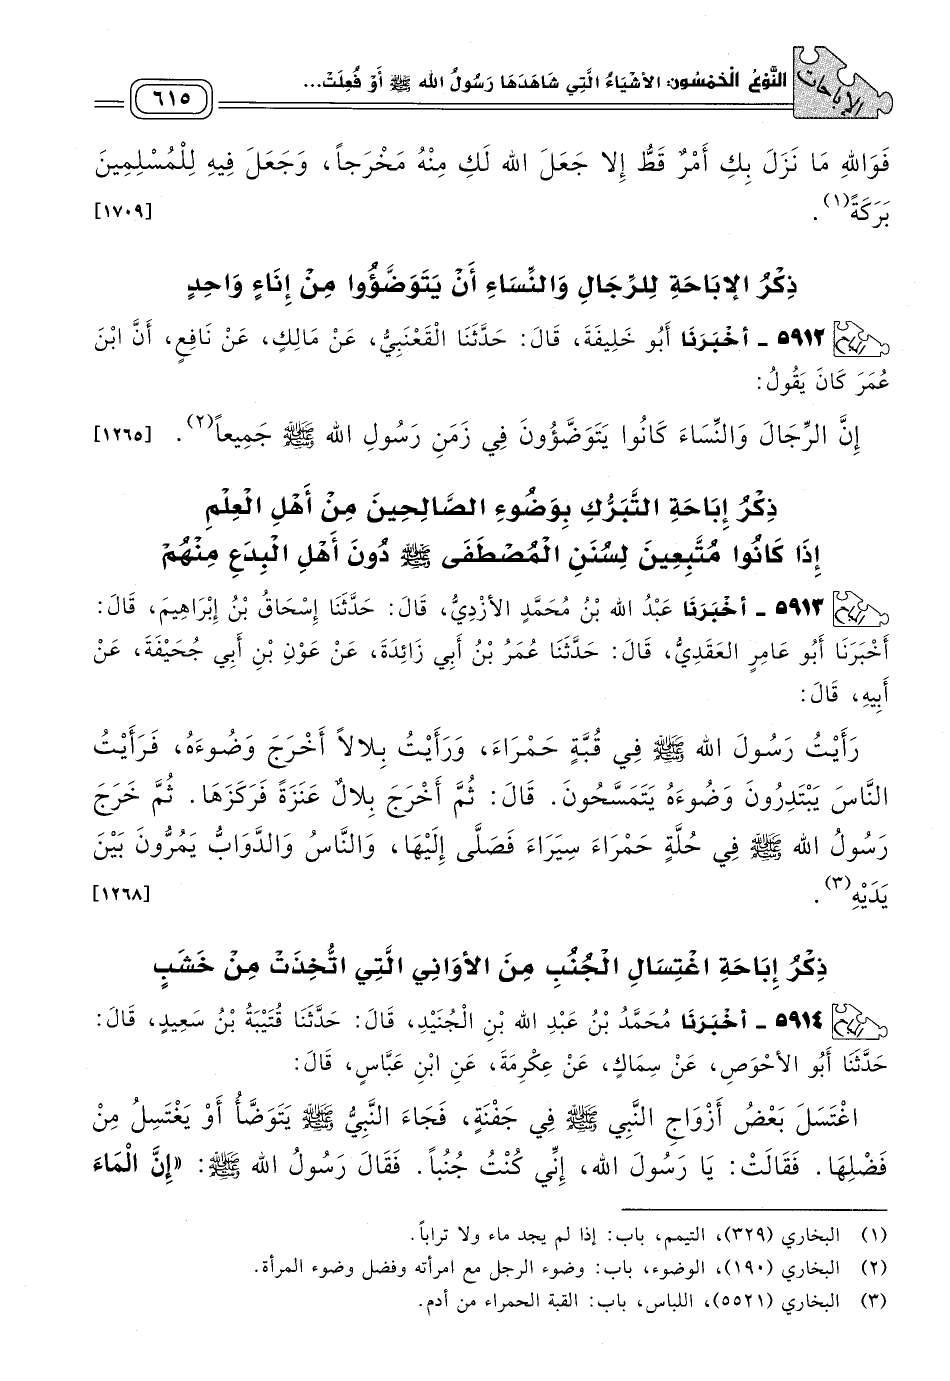 الإباحات
النَّوْعُ الْخَمْسُون: الأشْيَاءُ الَّتِي شَاهَدَهَا رَسُولُ الله ﷺ أَوْ فُعِلَتْ...
٦١٥
فَوَاللهِ مَا نَزَلَ بِكِ أَمْرٌ قَطُّ إِلا جَعَلَ الله لَكِ مِنْهُ مَخْرَجاً، وَجَعَلَ فِيهِ لِلْمُسْلِمِينَ
بَرَكَةً(١). [١٧٠٩]
ذِكْرُ الإبَاحَةِ لِلرِّجَالِ وَالنِّسَاءِ أَنْ يَتَوَضَّؤُوا مِنْ إِنَاءٍ وَاحِدٍ
٥٩١٢ - أَخْبَرَنَا أَبُو خَلِيفَةَ، قَالَ: حَدَّثَنَا الْقَعْنَبِيُّ، عَنْ مَالِكٍ، عَنْ نَافِعٍ، أَنَّ ابْنَ
عُمَرَ كَانَ يَقُولُ:
إِنَّ الرِّجَالَ وَالنِّسَاءَ كَانُوا يَتَوَضَّؤُونَ فِي زَمَنِ رَسُولِ الله ﷺ جَمِيعاً(٢). [١٢٦٥]
ذِكْرُ إِبَاحَةِ التَّبَرُّكِ بِوَضُوءِ الصَّالِحِينَ مِنْ أَهْلِ الْعِلْمِ
إِذَا كَانُوا مُتَّبِعِينَ لِسُنَنِ الْمُصْطَفَى ﷺ دُونَ أَهْلِ الْبِدَعِ مِنْهُمْ
٥٩١٣ - أَخْبَرَنَا عَبْدُ الله بْنُ مُحَمَّدٍ الأزْدِيُّ، قَالَ: حَدَّثَنَا إِسْحَاقُ بْنُ إِبْرَاهِيمَ، قَالَ:
أَخْبَرَنَا أَبُو عَامِرٍ العَقَدِيُّ، قَالَ: حَدَّثَنَا عُمَرُ بْنُ أَبِي زَائِدَةَ، عَنْ عَوْنِ بْنِ أَبِي جُحَيْفَةَ، عَنْ
أَبِيهِ، قَالَ:
رَأَيْتُ رَسُولَ الله ﷺ فِي قُبَّةٍ حَمْرَاءَ، وَرَأَيْتُ بِلالاً أَخْرَجَ وَضُوءَهُ، فَرَأَيْتُ
النَّاسَ يَبْتَدِرُونَ وَضُوءَهُ يَتَمَسَّحُونَ. قَالَ: ثُمَّ أَخْرَجَ بِلالٌ عَنَزَةً فَرَكَزَهَا. ثُمَّ خَرَجَ
رَسُولُ الله ﷺ فِي حُلَّةٍ حَمْرَاءَ سِيَرَاءَ فَصَلَّى إِلَيْهَا، وَالنَّاسُ وَالدَّوَابُّ يَمُرُّونَ بَيْنَ
يَدَيْهِ(٣). [١٢٦٨]
ذِكْرُ إِبَاحَةِ اغْتِسَالِ الْجُنُبِ مِنَ الأوَانِي الَّتِي اتُّخِذَتْ مِنْ خَشَبٍ
٥٩١٤ - أَخْبَرَنَا مُحَمَّدُ بْنُ عَبْدِ الله بْنِ الْجُنَيْدِ، قَالَ: حَدَّثَنَا قُتَيْبَةُ بْنُ سَعِيدٍ، قَالَ:
حَدَّثَنَا أَبُو الأحْوَصِ، عَنْ سِمَاكٍ، عَنْ عِكْرِمَةَ، عَنِ ابْنِ عَبَّاسٍ، قَالَ:
اغْتَسَلَ بَعْضُ أَزْوَاجِ النَّبِي ﷺ فِي جَفْنَةٍ، فَجَاءَ النَّبِيُّ ﷺ يَتَوَضَّأُ أَوْ يَغْتَسِلُ مِنْ
فَضْلِهَا. فَقَالَتْ: يَا رَسُولَ الله، إِنِّي كُنْتُ جُنُباً. فَقَالَ رَسُولُ الله ﷺ: «إِنَّ الْمَاءَ
(١) البخاري (٣٢٩)، التيمم، باب: إذا لم يجد ماء ولا تراباً.
(٢) البخاري (١٩٠)، الوضوء، باب: وضوء الرجل مع امرأته وفضل وضوء المرأة.
(٣) البخاري (٥٥٢١)، اللباس، باب: القبة الحمراء من أدم.